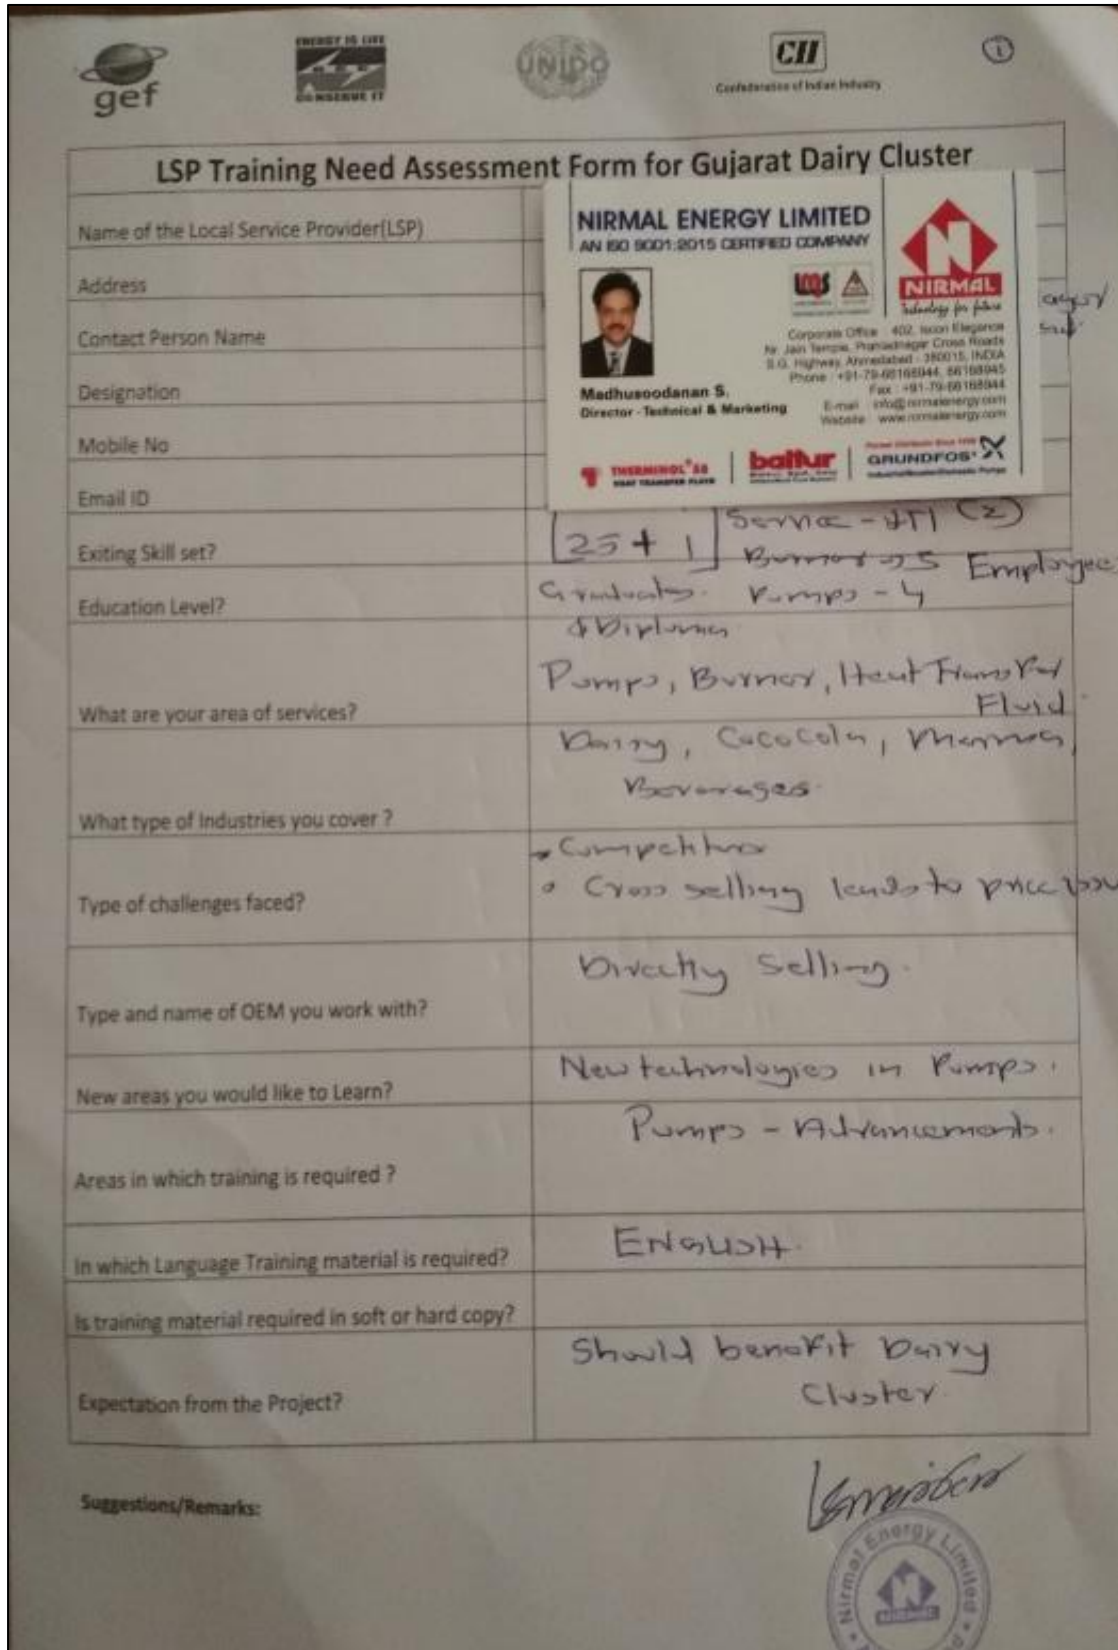 gef
ENERGY IS LIFE
BEE
CONSERVE IT
UNIDO
CII
Confederation of Indian Industry
1
LSP Training Need Assessment Form for Gujarat Dairy Cluster
Name of the Local Service Provider(LSP)
Address
Contact Person Name
Designation
Mobile No
Email ID
NIRMAL ENERGY LIMITED
AN ISO 9001:2015 CERTIFIED COMPANY
NIRMAL
Technology for future
Corporate Office : 402, Iscon Elegance
Nr. Jain Temple, Prahladnagar Cross Roads
S.G. Highway, Ahmedabad - 380015, INDIA
Phone : +91-79-66168944, 66168945
Fax : +91-79-66168944
E-mail : info@nirmalenergy.com
Website : www.nirmalenergy.com
Madhusoodanan S.
Director - Technical & Marketing
THERMINOL 58
HEAT TRANSFER FLUID
baltur
GRUNDFOS
Exiting Skill set? 25 + 1 Service - (2)
Burner 5 Employee
Education Level? Graduates. Pumps - 4
& Diploma
What are your area of services? Pumps, Burner, Heat Transfer
Fluid
What type of Industries you cover ? Dairy, CocaCola, Pharma,
Beverages
Type of challenges faced? Competitor
Cross selling leads to price issu
Type and name of OEM you work with? Directly Selling.
New areas you would like to Learn? New technologies in Pumps.
Areas in which training is required ? Pumps - Advancements.
In which Language Training material is required? ENGLISH.
Is training material required in soft or hard copy?
Expectation from the Project? Should benefit Dairy
Cluster
Suggestions/Remarks:
Nirmal Energy Limited